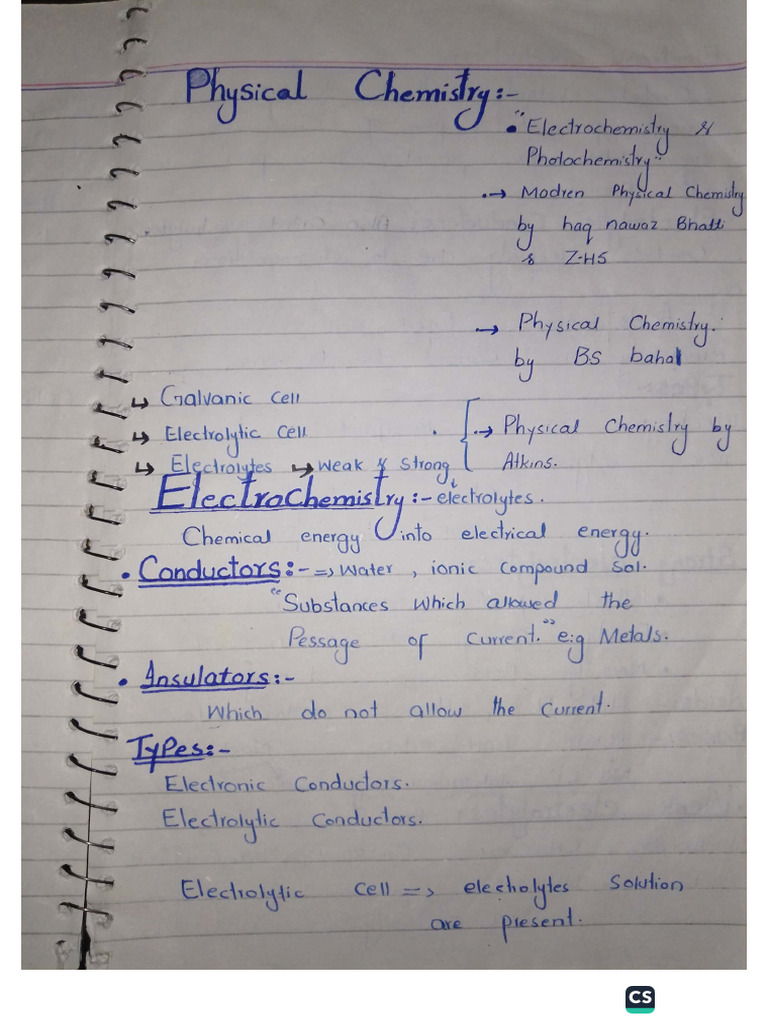 Physical Chemistry:-
• "Electrochemistry &
Photochemistry"
.→ Modren Physical Chemistry
by haq nawaz Bhatti
& Z-HS
→ Physical Chemistry.
by BS bahal
↳ Galvanic Cell
↳ Electrolytic Cell
.→ Physical Chemistry by
Atkins.
↳ Electrolytes ↳ Weak & Strong
↓
Electrochemistry:- electrolytes.
Chemical energy into electrical energy.
• Conductors:- => Water, ionic Compound Sol.
"Substances which allowed the
Pessage of Current." e:g Metals.
• Insulators:-
Which do not allow the Current.
Types:-
Electronic Conductors.
Electrolytic Conductors.
Electrolytic Cell => elecholytes Solution
are present.
CS